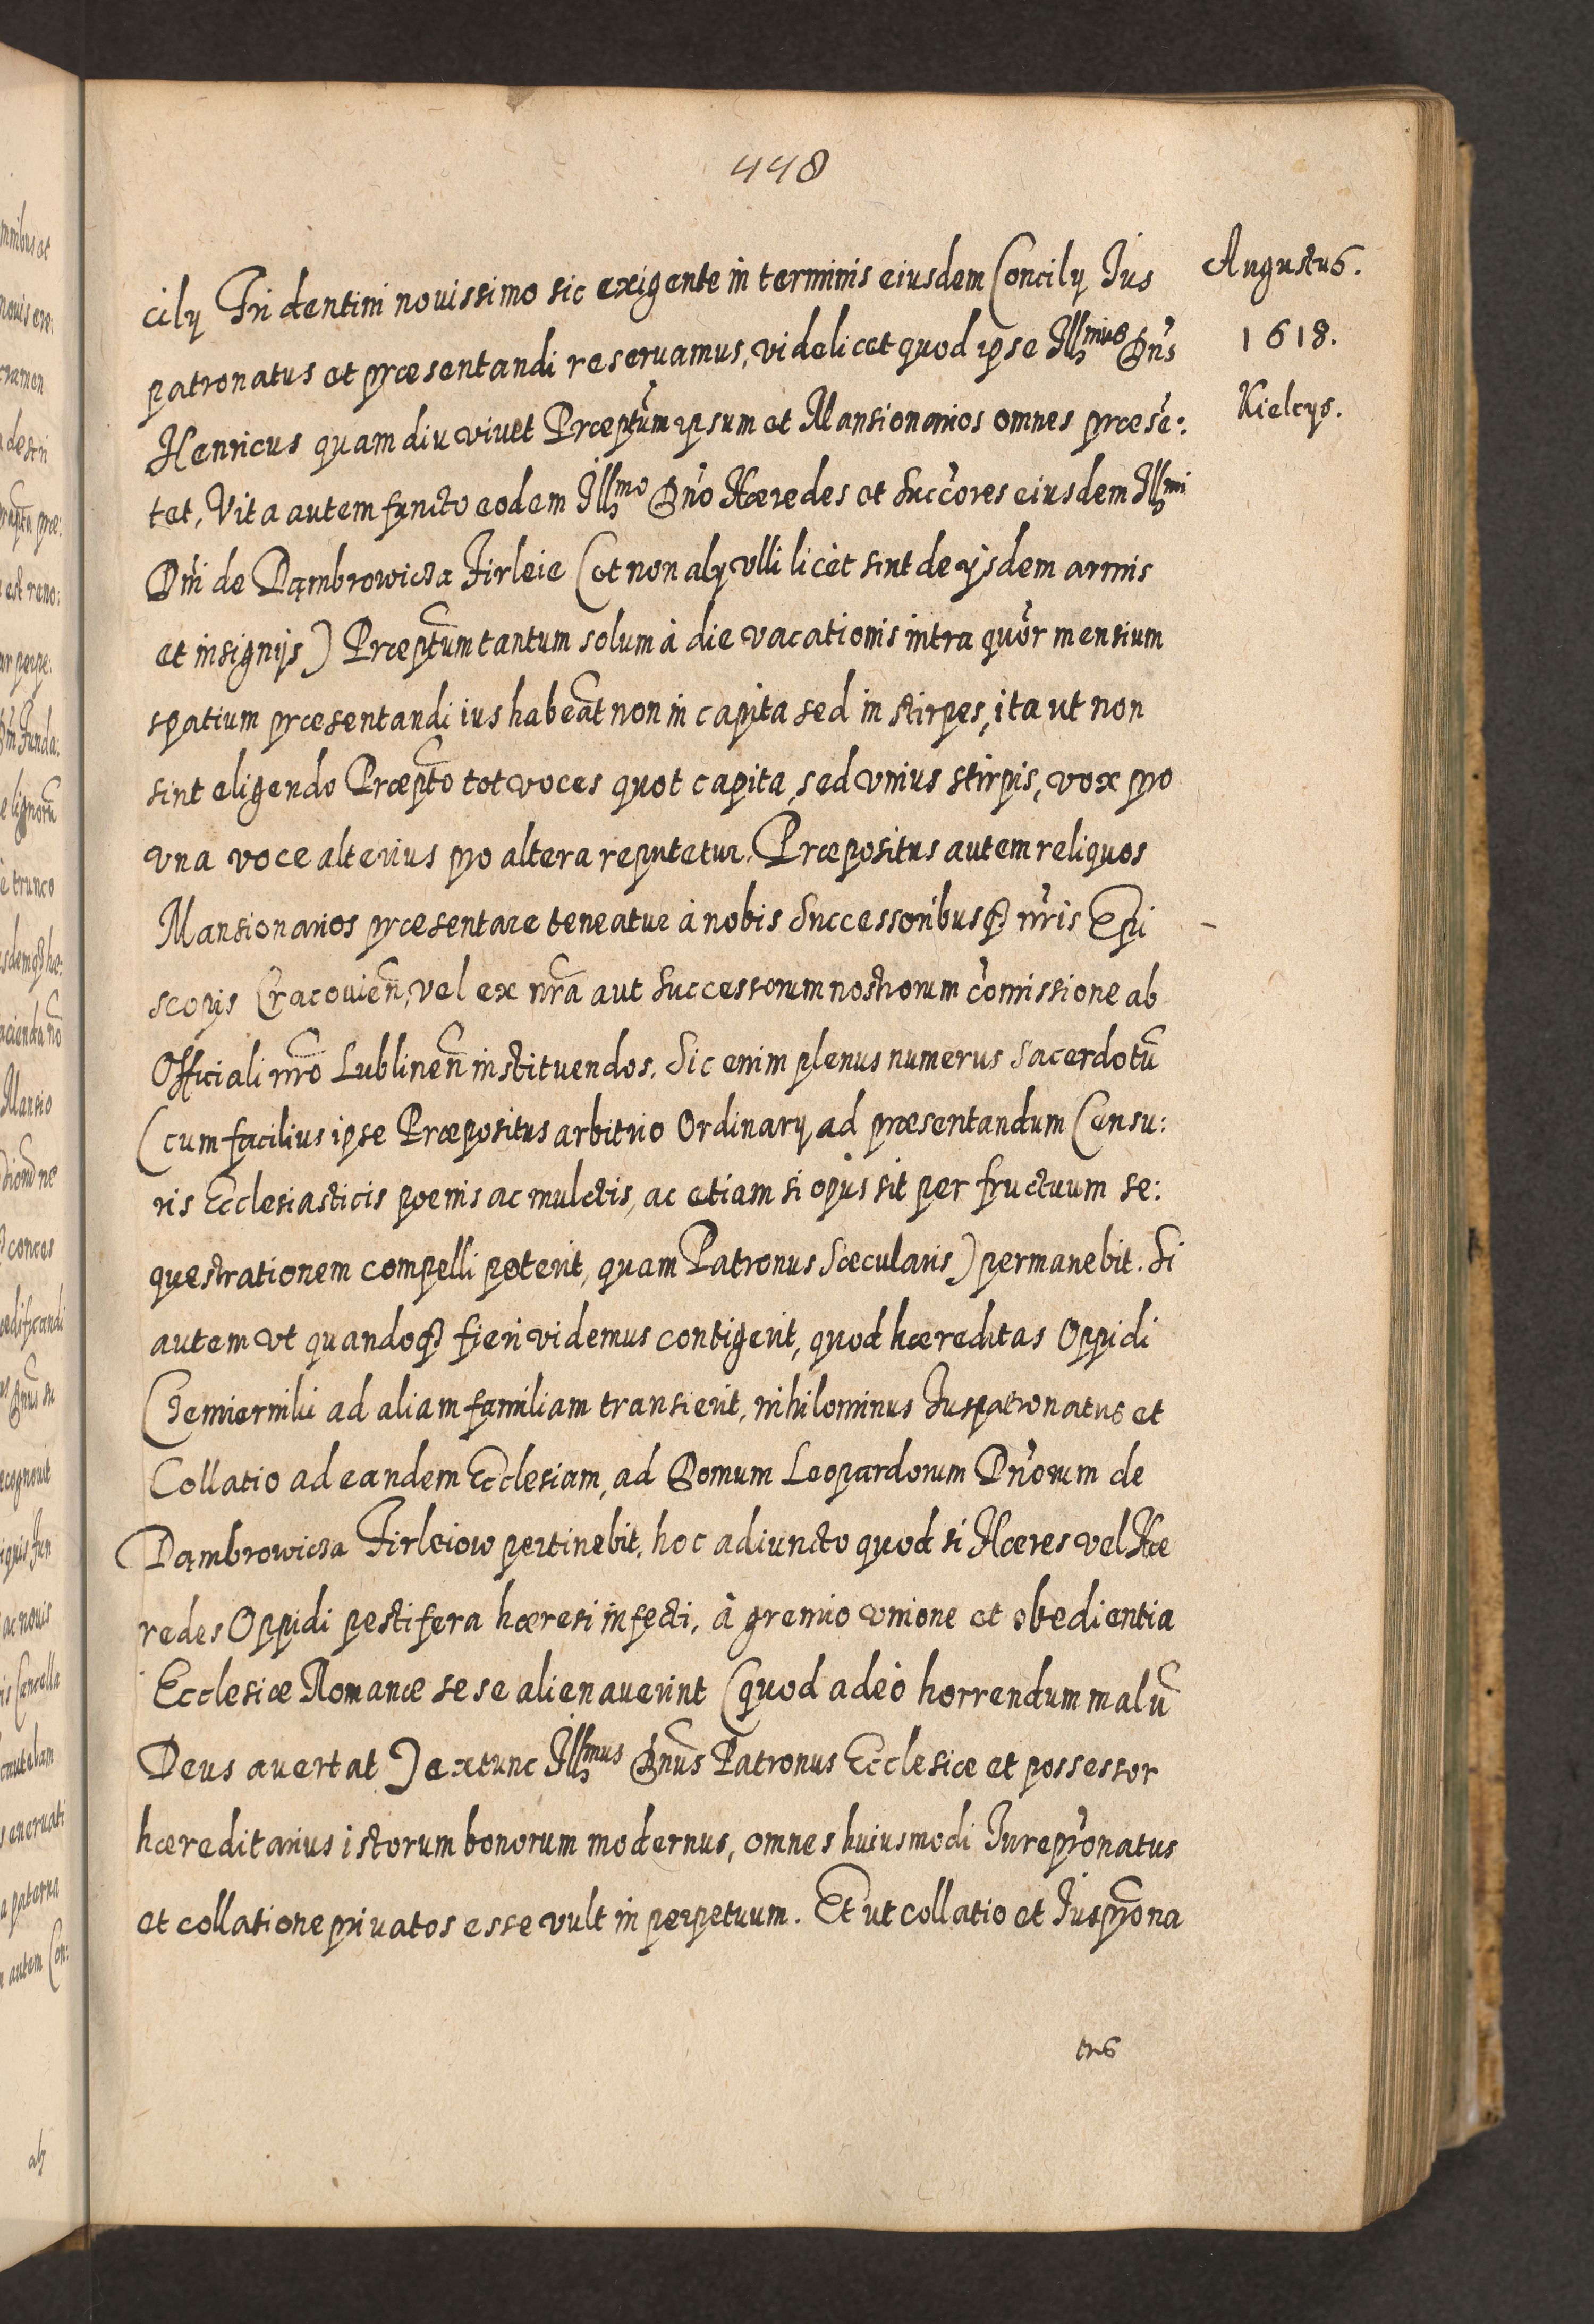 448
Augustus.
1618.
Kielcys.
cily Tridentini nouissimo sic exigente in terminis eiusdem Concily Ius
patronatus et præsentandi reseruamus, videlicet quod ipse Illmus Dn̄s
Henricus quamdiu viuet Præptum ipsum et Mansionarios omnes præsē:
tet, Vita autem functo eodem Illmo Dn̄o Hæredes et Succ̄ores eiusdem Illmi
Dn̄i de Dąmbrowicza Firleie (et non aly vlli licèt sint de ijsdem armis
et insignijs) Præptum tantum solum à die vacationis intra quōr mensium
spatium præsentandi ius habeāt non in capita sed in stirpes, ita ut non
sint eligendo Præpto tot voces quot capita, sed vnius stirpis, vox pro
vna voce alterius pro altera reputetur. Præpositus autem reliquos
Mansionarios præsentare teneatur à nobis Successoribusq3 nr̄is Epi
scopis Cracouien̄, vel ex nr̄a aut Successorum nostrorum com̄issione ab
Officiali nr̄o Lublinen̄ instituendos. Sic enim plenus numerus Sacerdotū
(cum facilius ipse Præpositus arbitrio Ordinary ad præsentandum Censu:
ris Ecclesiasticis poenis ac mulctis, ac etiam si opus sit per fructuum se:
questrationem compelli poterit, quam Patronus Sæcularis) permanebit. Si
autem vt quandoq3 fieri videmus contigerit, quod hæreditas Oppidi
Czemiernilii ad aliam familiam transierit, nihilominus Iuspatronatus et
Collatio ad eandem Ecclesiam, ad Domum Leopardorum Dn̄orum de
Dąmbrowicza Firleiow pertinebit, hoc adiuncto quod si Hæres vel Hæ
redes Oppidi pestifera hæresi infecti, à gremio vnione et obedientia
Ecclesiæ Romanæ sese alienauerint (quod adeò horrendum malū
Deus auertat) extunc Illmus Dnūs Patronus Ecclesiæ et possessor
hæreditarius istorum bonorum modernus, omnes huiusmodi Iurepr̄onatus
et collatione priuatos esse vult in perpetuum. Et ut collatio et Iuspr̄ona
tus